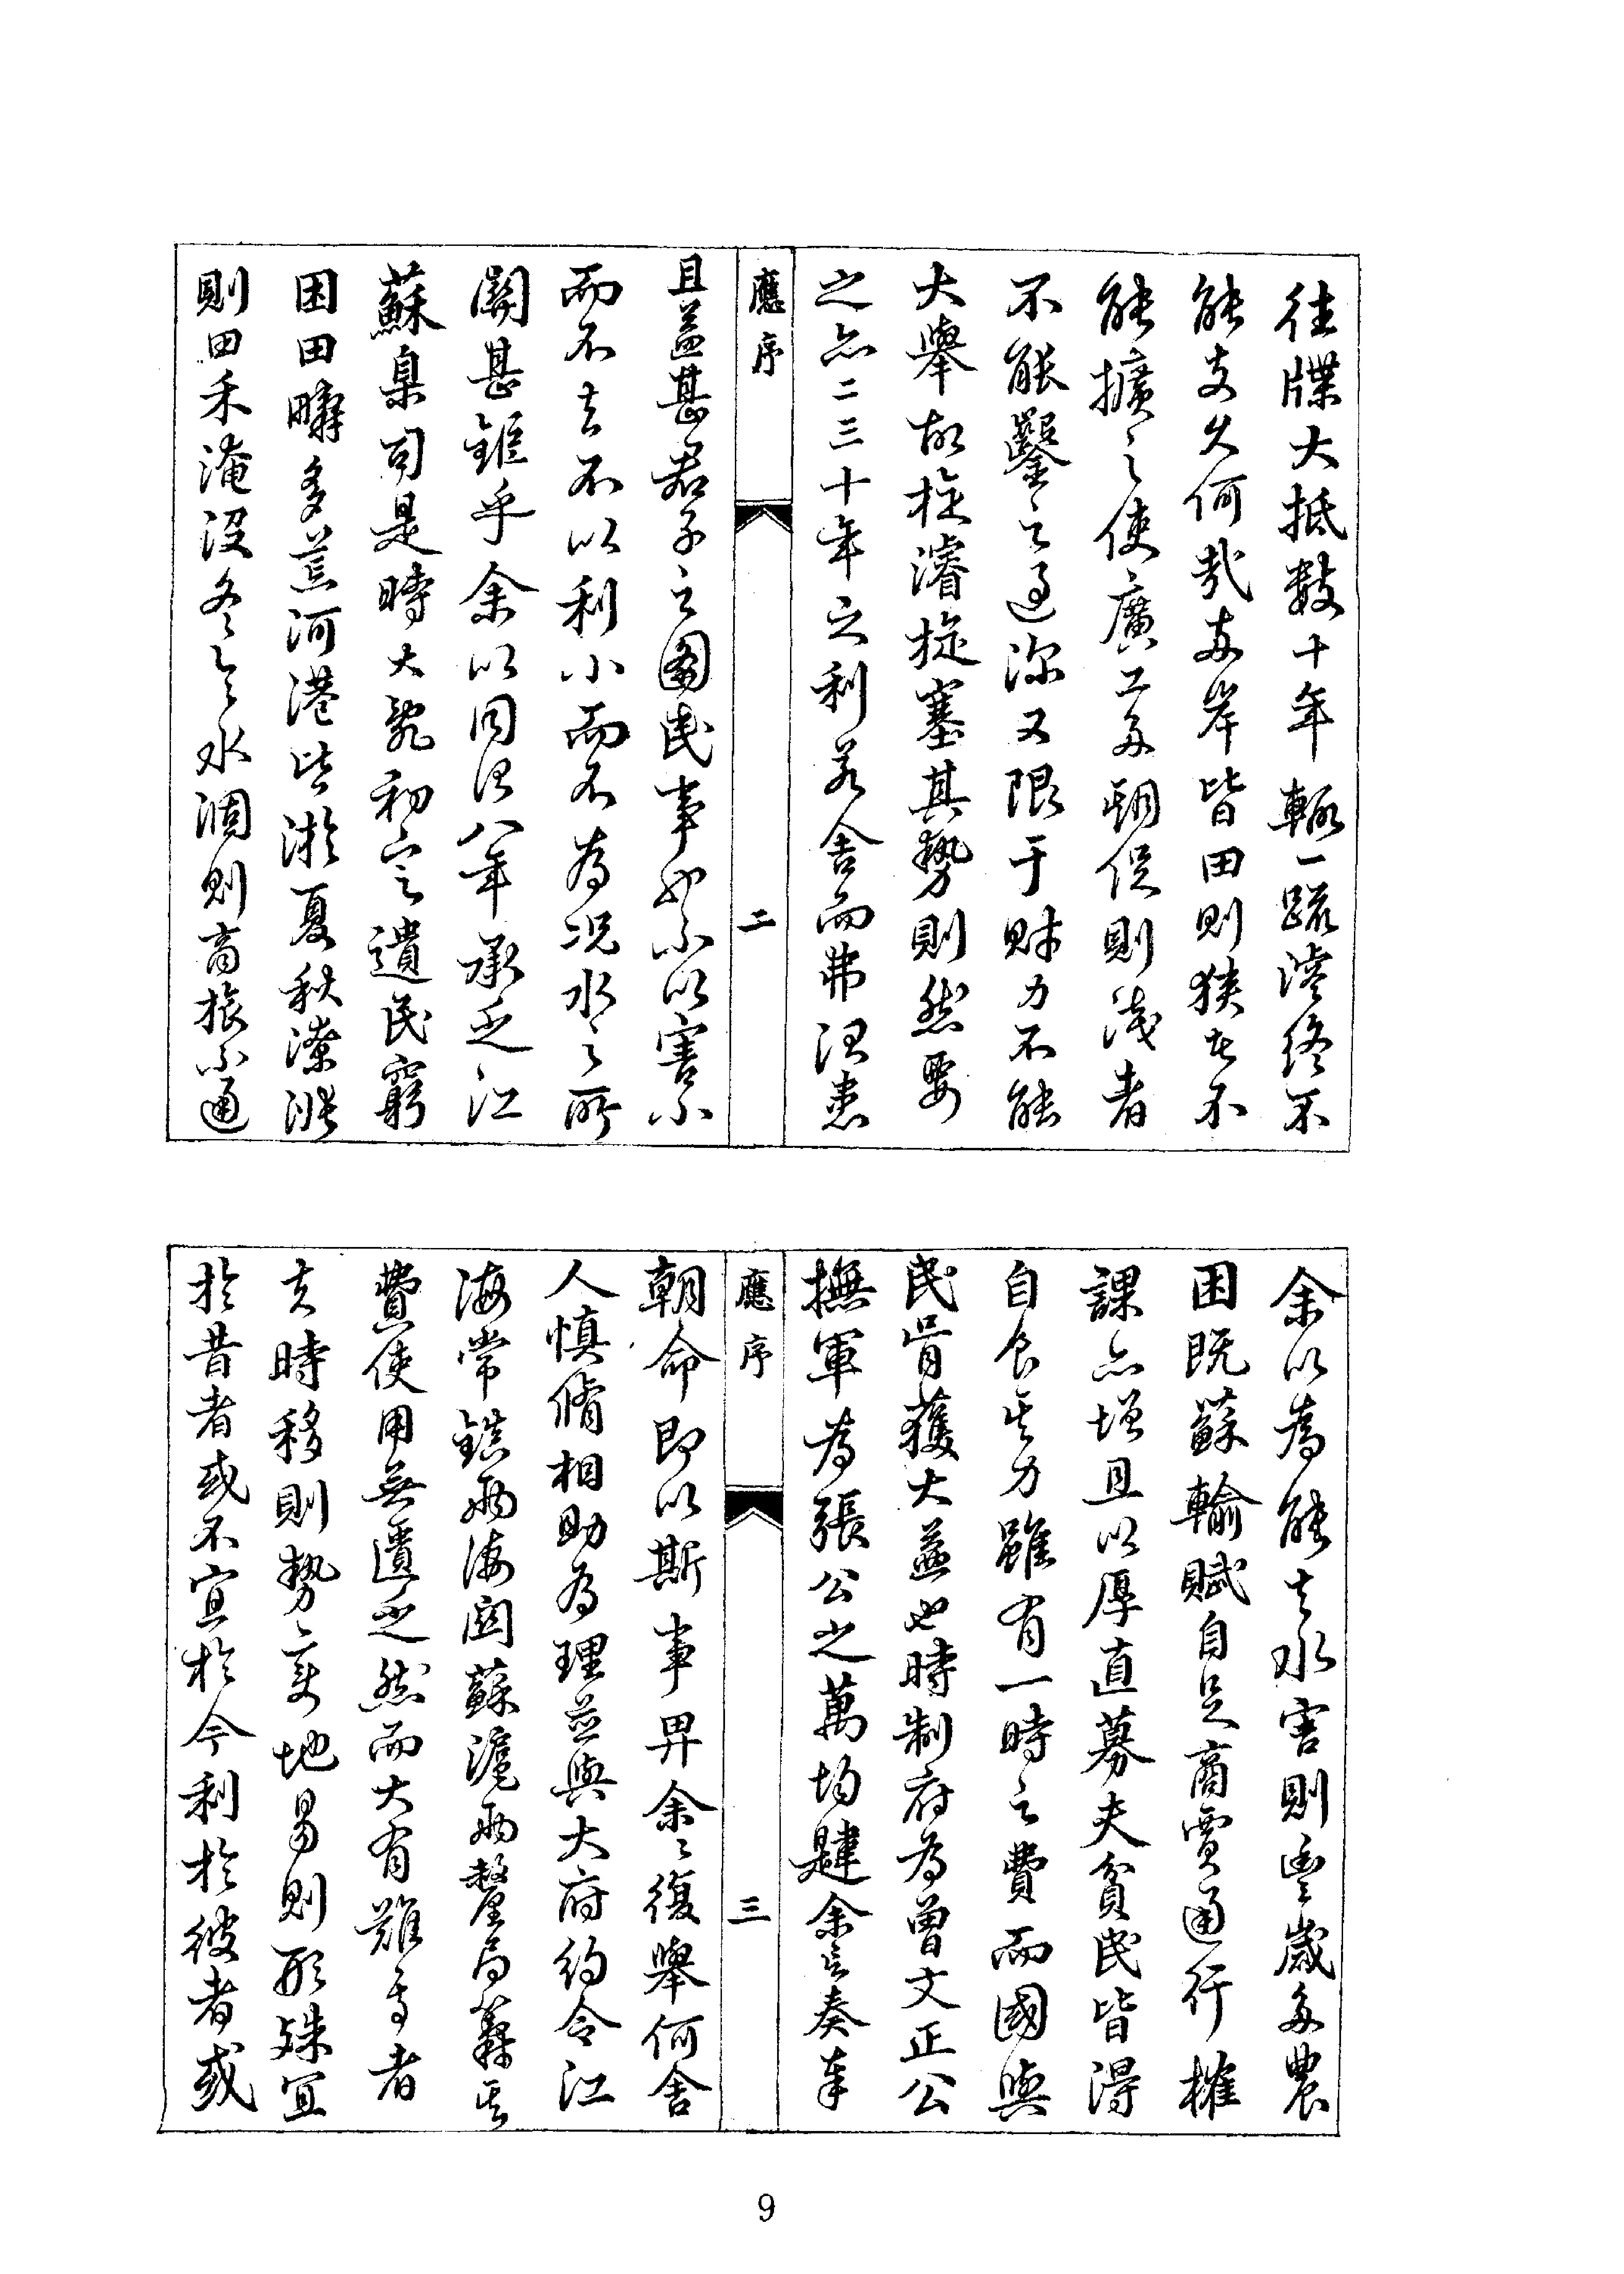 往牒大抵數十年輒一疏濬終不
能支久何哉兩岸皆田則狹者不
能擴之使廣工多期促則淺者
不能鑿之過深又限于財力不能
大舉故旋濬旋塞其勢則然要
之亦二三十年之利若舍而弗治患
應序
二
且益甚君子之圖民事也不以害小
而不去不以利小而不為況水之所
關甚鉅乎余以同治八年承乏江
蘇臬司是時大亂初定遺民窮
困田疇多荒河港皆淤夏秋潦漲
則田禾淹沒冬令水涸則商旅不通
余以為能去水害則豐歲多農
困既蘇輸賦自足商賈通行榷
課亦增且以厚直募夫貧民皆得
自食其力雖有一時之費而國與
民胥獲大益也時制府為曾文正公
撫軍為張公之萬均韙余言奏奉
應序
三
朝命即以斯事畀余余復舉何舍
人慎脩相助為理並與大府約令江
海常鎮兩海關蘇滬兩釐局籌其
費使用無遺乏然而大有難焉者
夫時移則勢變地易則形殊宜
於昔者或不宜於今利於彼者或
9